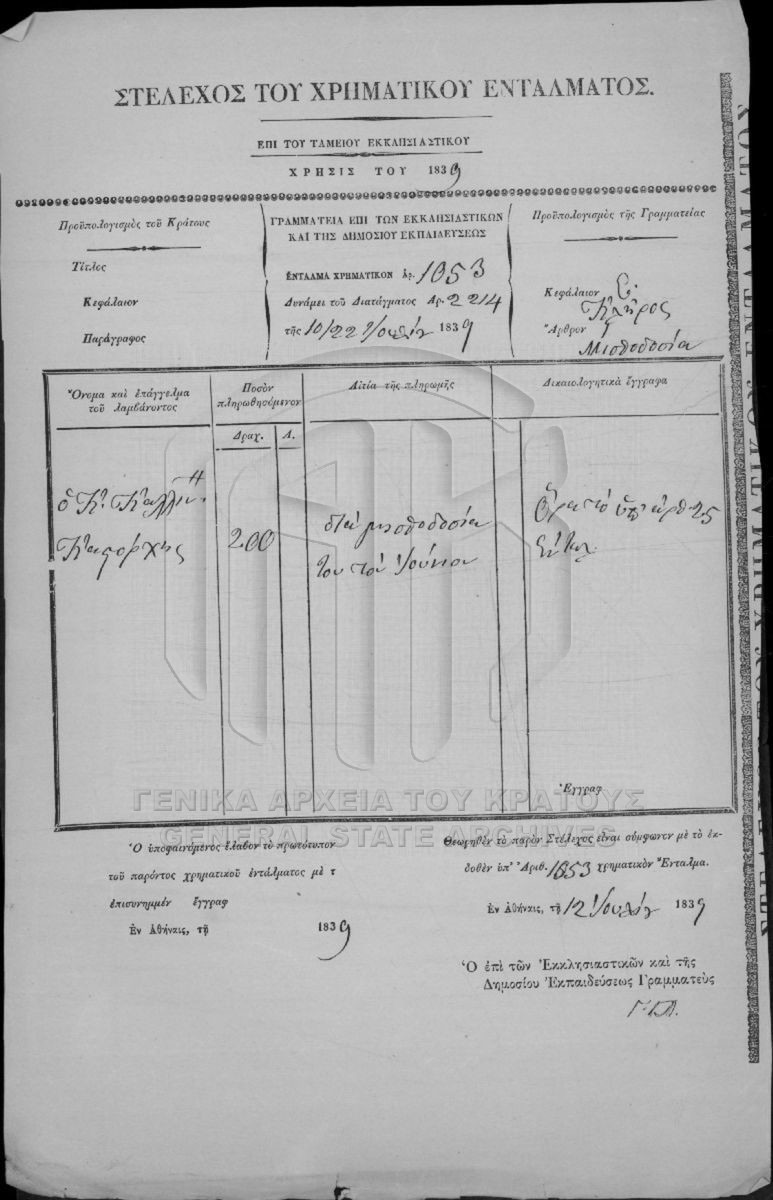 ΣΤΕΛΕΧΟΣ ΤΟΥ ΧΡΗΜΑΤΙΚΟΥ ΕΝΤΑΛΜΑΤΟΣ.
ΕΠΙ ΤΟΥ ΤΑΜΕΙΟΥ ΕΚΚΛΗΣΙΑΣΤΙΚΟΥ
ΧΡΗΣΙΣ ΤΟΥ 1839
Προϋπολογισμὸς τοῦ Κράτους
Τίτλος
Κεφάλαιον
Παράγραφος
ΓΡΑΜΜΑΤΕΙΑ ΕΠΙ ΤΩΝ ΕΚΚΛΗΣΙΑΣΤΙΚΩΝ
ΚΑΙ ΤΗΣ ΔΗΜΟΣΙΟΥ ΕΚΠΑΙΔΕΥΣΕΩΣ
ΕΝΤΑΛΜΑ ΧΡΗΜΑΤΙΚΟΝ Ἀρ. 1053
Δυνάμει τοῦ Διατάγματος Αρ. 2214
τῆς 10/22 Ἰουλίου 1839
Προϋπολογισμὸς τῆς Γραμματείας
Κεφάλαιον
Κλῆρος
Ἄρθρον
Μισθοδοσία
Ὄνομα καὶ ἐπάγγελμα
τοῦ λαμβάνοντος
Ποσὸν
πληρωθησόμενον
Δραχ. Λ.
Αἰτία τῆς πληρωμῆς
Δικαιολογητικὰ ἔγγραφα
ὁ Κ. Καλλιν.
Καστόρχης
200
διὰ μισθοδοσία
του τοῦ Ἰουνίου
Ὅρα τὸ ὑπ' ἀρθ 25
Ἐνταλ.
Ἐγγραφ
ΓΕΝΙΚΑ ΑΡΧΕΙΑ ΤΟΥ ΚΡΑΤΟΥΣ
GENERAL STATE ARCHIVES
Ὁ ὑποφαινόμενος ἔλαβον τὸ πρωτότυπον
τοῦ παρόντος χρηματικοῦ ἐντάλματος μὲ τ
ἐπισυνημμέν ἔγγραφ
Ἐν Ἀθήναις, τῇ 1839
Θεωρηθὲν τὸ παρὸν Στέλεχος εἶναι σύμφωνον μὲ τὸ ἐκ-
δοθὲν ὑπ' Ἀριθ. 1053 χρηματικὸν Ἔνταλμα.
Ἐν Ἀθήναις, τῇ 12 Ἰουλίου 1839
Ὁ ἐπὶ τῶν Ἐκκλησιαστικῶν καὶ τῆς
Δημοσίου Ἐκπαιδεύσεως Γραμματεὺς